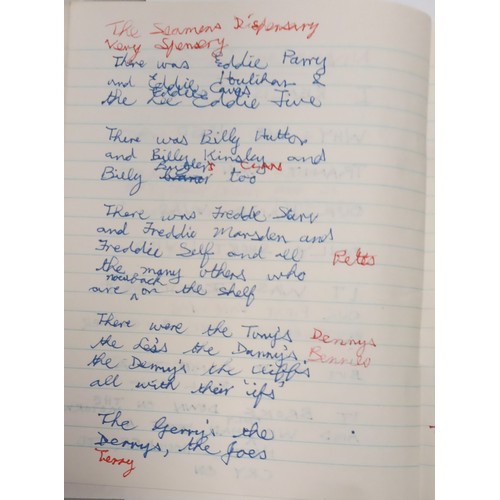 The Seamens Dispensary
Very Spensery
There was Eddie Parry
and Eddie Houlihan &
Eddie Caves
the Lee Eddie Five
There was Billy Hutton
and Billy Kinsley and
Butler's Cyan
Billy too
There was Fredde Starr
and Freddie Marsden and
Freddie Self and all Petes
the many others who
now back
are ^ on the shelf
There were the Tony's Dennys
the Les's the Danny's Bennies
the Denny's the Cliff's
all with their 'ifs'
The Gerry's the
Derrys, the Joes
Terry